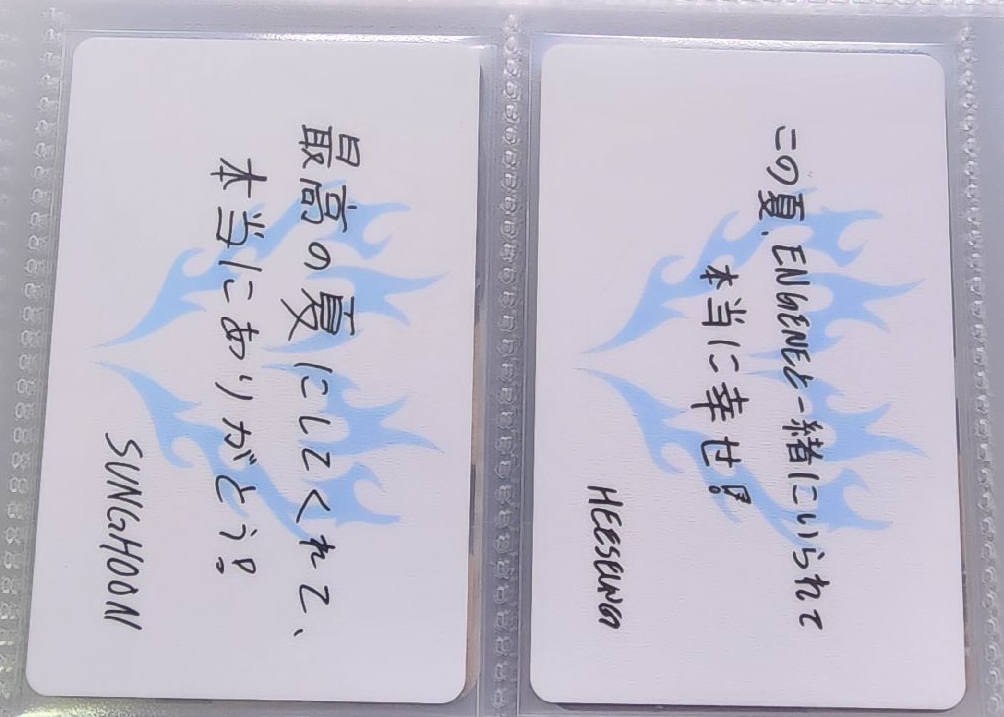 最高の夏にしてくれて、
本当にありがとう!
SUNGHOON
この夏、ENGENEと一緒にいられて
本当に幸せ!
HEESEUNG